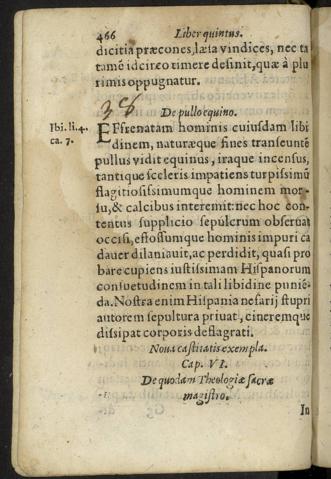 466 Liber quintus.
dicitia præcones, læta vindices, nec ta
tamē idcirco timere desinit, quæ à plu
rimis oppugnatur.
38
De pullo equino.
Ibi. li. 4.
ca. 7.
EFfrenatam hominis cuiusdam libi
dinem, naturæque fines transeuntē
pullus vidit equinus, iraque incensus,
tantique sceleris impatiens turpissimū
flagitiosissimumque hominem mor-
su, & calcibus interemit: nec hoc con-
tentus supplicio sepulcrum obseruat
occisi, effossumque hominis impuri ca
dauer dilaniauit, ac perdidit, quasi pro
bare cupiens iustissimam Hispanorum
consuetudinem in tali libidine punié-
da. Nostra enim Hispania nefarij stupri
autorem sepultura priuat, cineremque
dissipat corporis deflagrati.
Noua castitatis exempla.
Cap. VI.
De quodam Theologiæ sacræ
magistro.
In